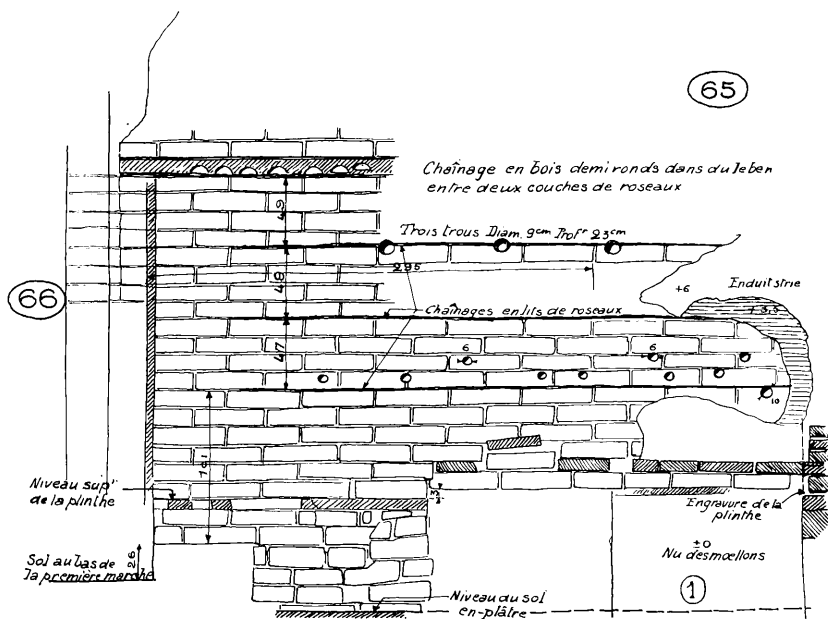 65
Chaînage en bois demi ronds dans du leben
entre deux couches de roseaux
49
Trois trous Diam. 9cm Profr 23cm
295
48
66
+6
Enduit strie
+3,5
Chaînages en lits de roseaux
47
6
6
10
101
Niveau supr
de la plinthe
Engravure de la
plinthe
±0
Nu des moellons
Sol au bas de
la première marche
26
Niveau du sol
en plâtre
1